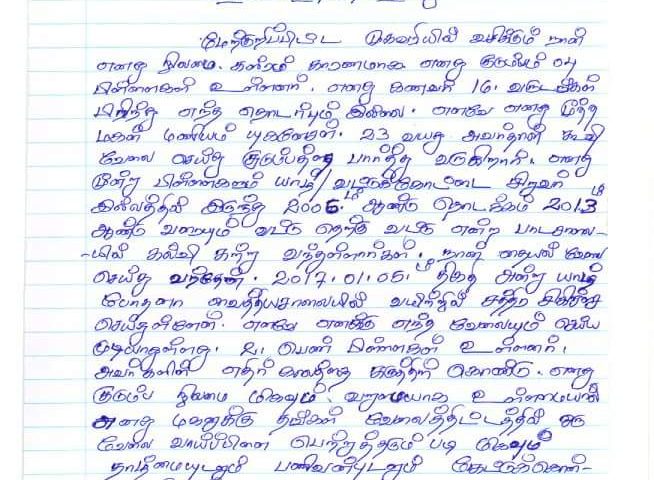 மேற்குறிப்பிட்ட முகவரியில் வசிக்கும் நான்
எனது நிலமை. கஸ்ரம் காரணமாக எனது குடும்பம் 04
பிள்ளைகள் உள்ளனர். எனது கணவர் 16. வருடங்கள்
பிரிந்து எந்த தொடர்பும் இல்லை. எனவே எனது மூத்த
மகன் மணியம் 23 வயது அவர்தான் கூலி
வேலை செய்து குடும்பத்தை பார்த்து வருகிறார். எனது
மூன்று பிள்ளைகளும் யாழ்/வட்டுக்கோட்டை சிறுவர்
இல்லத்தில் இருந்து 2006.ம் ஆண்டு தொடக்கம் 2013ம்
ஆண்டு வரையும் வட்டு தெற்கு வட்டு என்ற பாடசாலை-
-யில் கல்வி கற்று வந்துள்ளார்கள். நான் தையல் வேலை
செய்து வந்தேன். 2017.01.05.ம் திகதி அன்று யாழ்
போதனா வைத்தியசாலையில் வயிற்றில் சத்திர சிகிச்சை
செய்துள்ளேன். எனவே எனக்கு எந்த வேலையும் செய்ய
முடியாதுள்ளது. 2. பெண் பிள்ளைகள் உள்ளனர்.
அவர்களின் எதிர் காலத்தை கருத்தில் கொண்டு. எனது
குடும்ப நிலமை மிகவும். வறுமையாக உள்ளமையால்
எனது மகனுக்கு தங்கள் வேலைத்திட்டத்தில் ஒரு
வேலை வாய்ப்பினை பெற்றுத்தரும் படி மிகவும்
தாழ்மையுடனும் பணிவன்புடனும் கேட்டுக்கொள்-